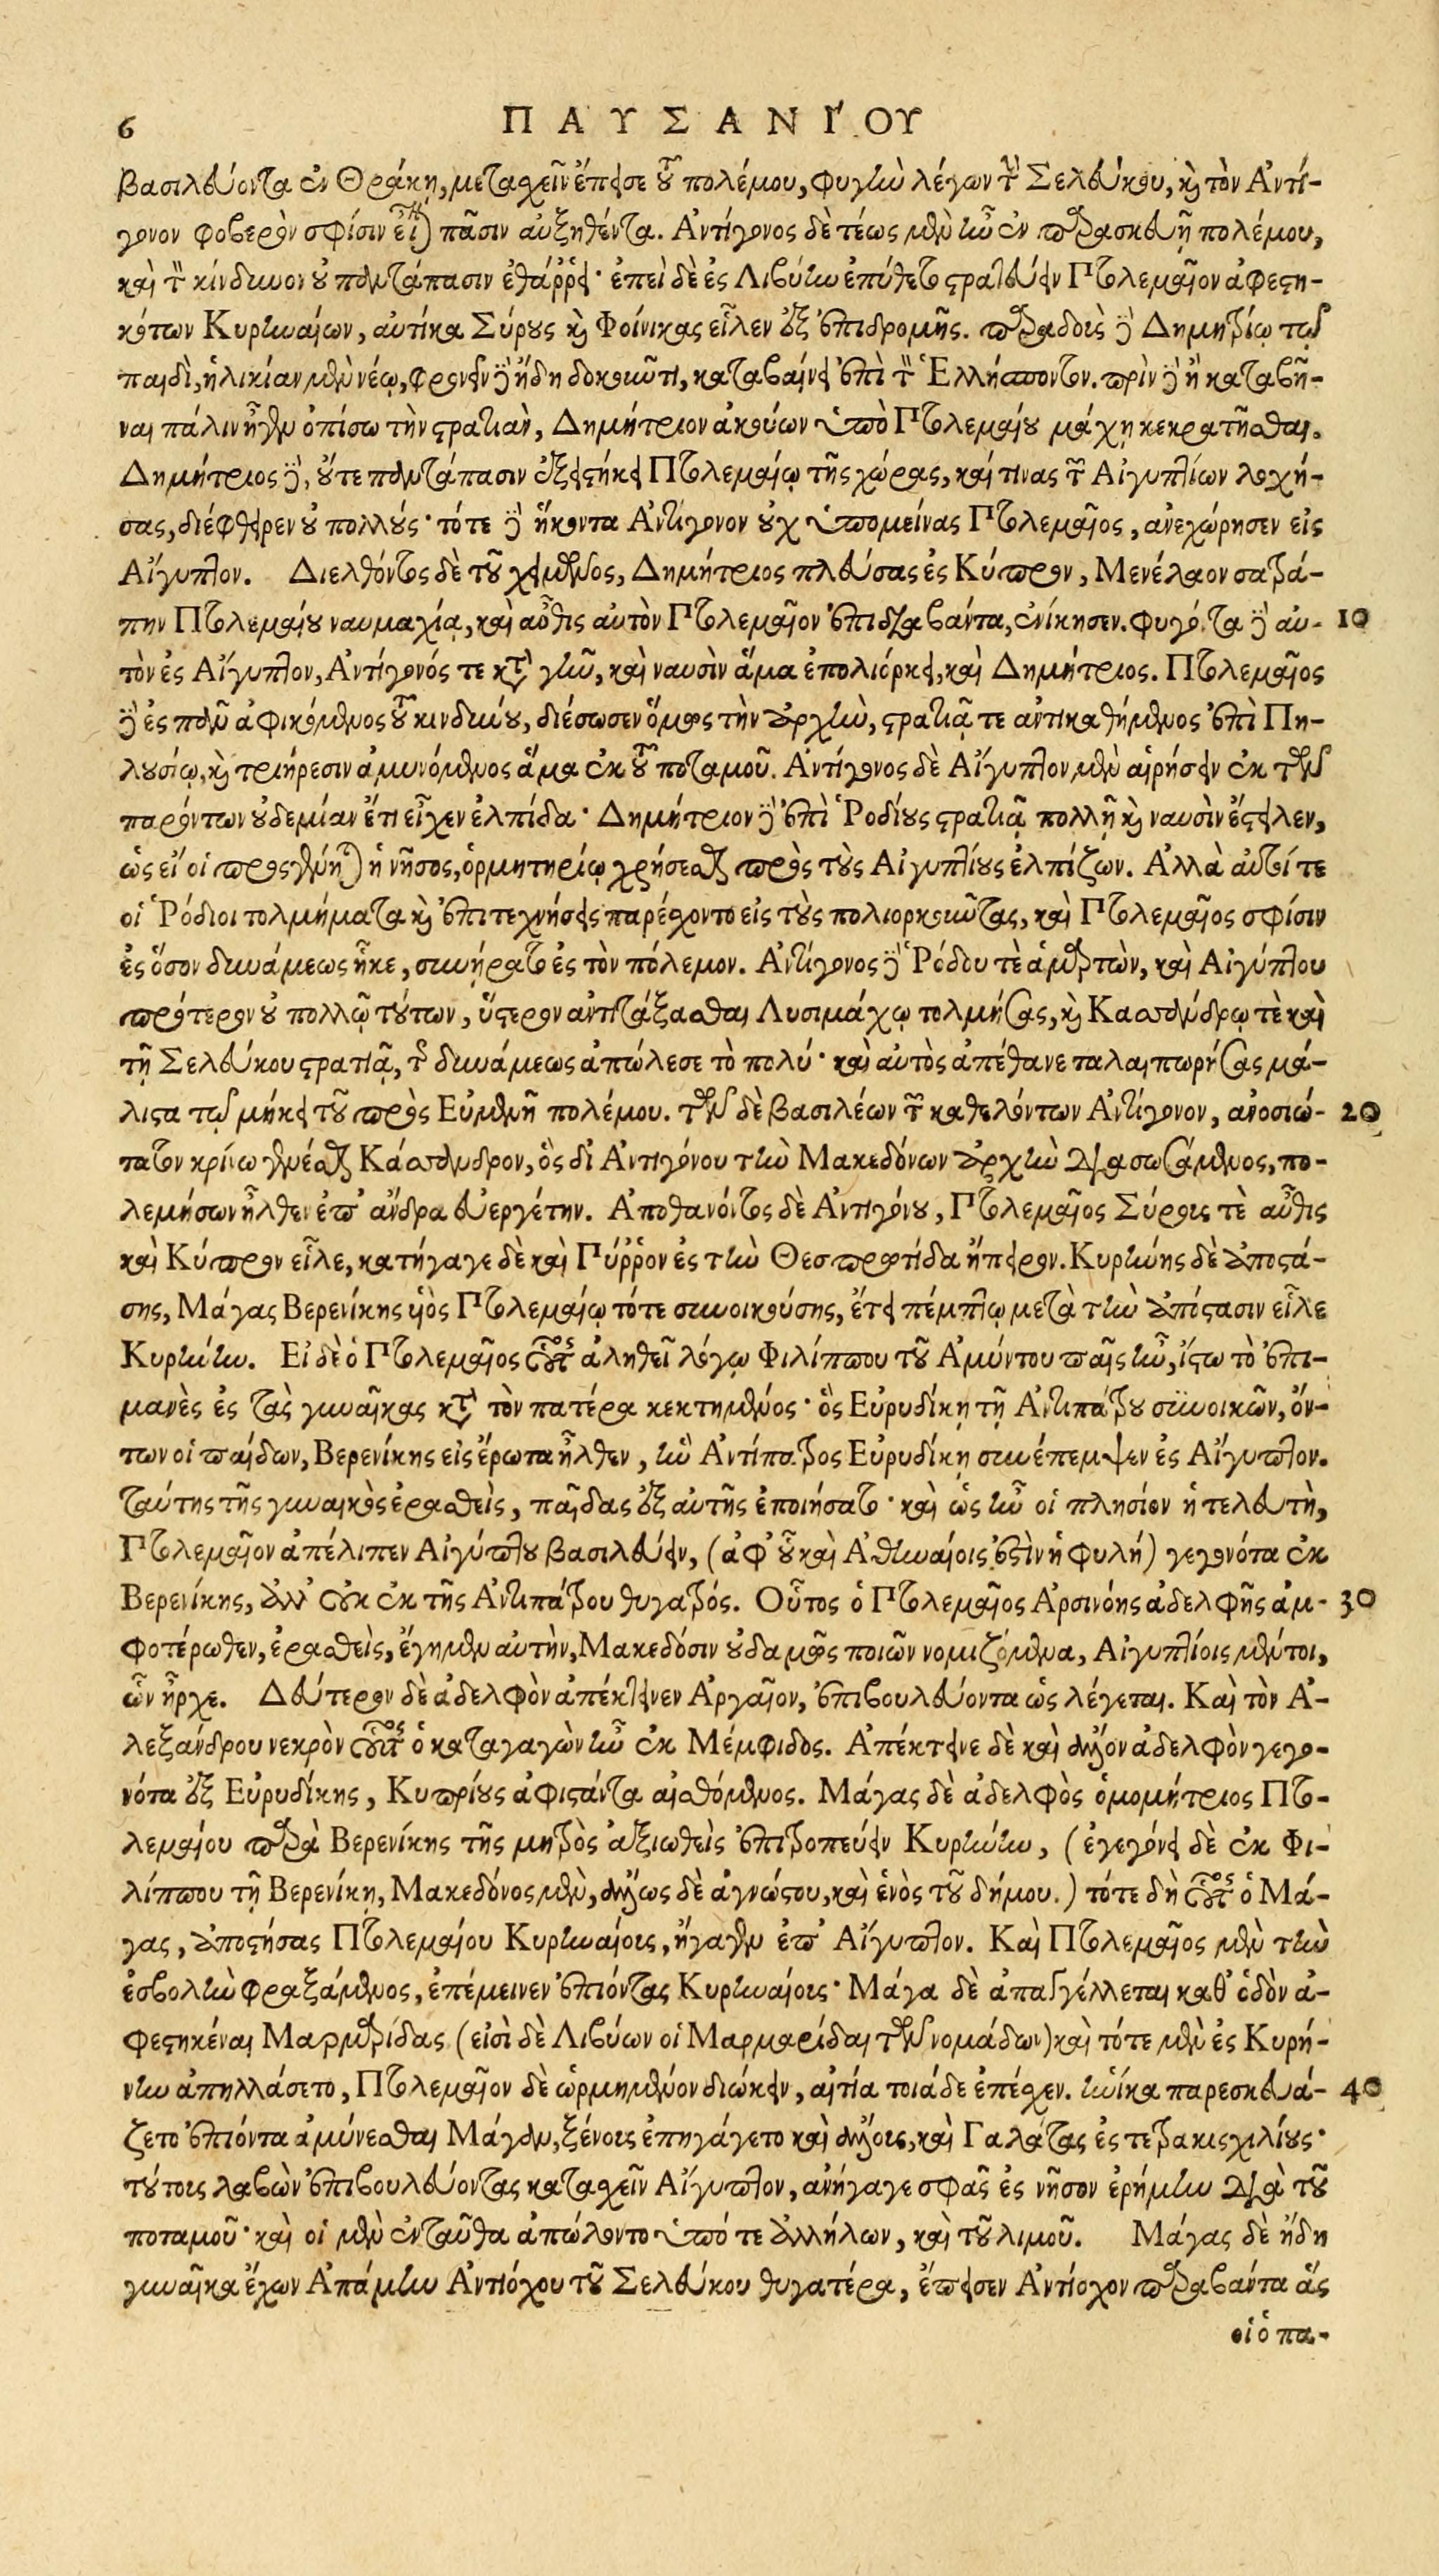 6 ΠΑΥΣΑΝΊΟΥ
βασιλεύοντα ἐν Θράκῃ, μετασχεῖν ἔπεισε τοῦ πολέμου, φυγὴν λέγων τὴν Σελεύκου, καὶ τὸν Ἀντί-
γονον φοβερὸν σφίσιν εἶναι πᾶσιν αὐξηθέντα. Ἀντίγονος δὲ τέως μὲν ἦν ἐν παρασκευῇ πολέμου,
καὶ τὸν κίνδυνον οὐ παντάπασιν ἐθάῤῥει· ἐπεὶ δὲ ἐς Λιβύην ἐπύθετο στρατεύειν Πτολεμαῖον ἀφεστη-
κότων Κυρηναίων, αὐτίκα Σύρους καὶ Φοίνικας εἷλεν ἐξ ἐπιδρομῆς. παραδοὺς δὲ Δημητρίῳ τῷ
παιδὶ, ἡλικίαν μὲν νέῳ, φρονεῖν δὲ ἤδη δοκοῦντι, καταβαίνει ἐπὶ τὸν Ἑλλήσποντον. πρὶν δὲ ἢ καταβῆ-
ναι πάλιν ἦγεν ὀπίσω τὴν στρατιὰν, Δημήτριον ἀκούων ὑπὸ Πτολεμαίου μάχῃ κεκρατῆσθαι.
Δημήτριος δὲ, οὔτε παντάπασιν ἐξειστήκει Πτολεμαίῳ τῆς χώρας, καί τινας τῶν Αἰγυπτίων λοχή-
σας, διέφθειρεν οὐ πολλούς· τότε δὲ ἥκοντα Ἀντίγονον οὐχ ὑπομείνας Πτολεμαῖος, ἀνεχώρησεν εἰς
Αἴγυπτον. Διελθόντος δὲ τοῦ χειμῶνος, Δημήτριος πλεύσας ἐς Κύπρον, Μενέλαον σατρά-
πην Πτολεμαίου ναυμαχίᾳ, καὶ αὖθις αὐτὸν Πτολεμαῖον ἐπιδιαβάντα, ἐνίκησεν. φυγόντα δὲ αὐ- 10
τὸν ἐς Αἴγυπτον, Ἀντίγονός τε κατὰ γῆν, καὶ ναυσὶν ἅμα ἐπολιόρκει, καὶ Δημήτριος. Πτολεμαῖος
δὲ ἐς πᾶν ἀφικόμενος τοῦ κινδύνου, διέσωσεν ὅμως τὴν ἀρχὴν, στρατιᾷ τε ἀντικαθήμενος ἐπὶ Πη-
λουσίῳ, καὶ τριήρεσιν ἀμυνόμενος ἅμα ἐκ τοῦ ποταμοῦ. Ἀντίγονος δὲ Αἴγυπτον μὲν αἱρήσειν ἐκ τῶν
παρόντων οὐδεμίαν ἔτι εἶχεν ἐλπίδα· Δημήτριον δὲ ἐπὶ Ῥοδίους στρατιᾷ πολλῇ καὶ ναυσὶν ἔστειλεν,
ὡς εἴ οἱ προσγένηται ἡ νῆσος, ὁρμητηρίῳ χρήσεσθαι πρὸς τοὺς Αἰγυπτίους ἐλπίζων. Ἀλλὰ αὐτοί τε
οἱ Ῥόδιοι τολμήματα καὶ ἐπιτεχνήσεις παρέσχοντο εἰς τοὺς πολιορκοῦντας, καὶ Πτολεμαῖος σφίσιν
ἐς ὅσον δυνάμεως ἧκε, συνήρατο ἐς τὸν πόλεμον. Ἀντίγονος δὲ Ῥόδου τὲ ἁμαρτὼν, καὶ Αἰγύπτου
πρότερον οὐ πολλῷ τούτων, ὕστερον ἀντιτάξασθαι Λυσιμάχῳ τολμήσας, καὶ Κασάνδρῳ τὲ καὶ
τῇ Σελεύκου στρατιᾷ, τῆς δυνάμεως ἀπώλεσε τὸ πολύ· καὶ αὐτὸς ἀπέθανε ταλαιπωρήσας μά-
λιστα τῷ μήκει τοῦ πρὸς Εὐμενῆ πολέμου. τῶν δὲ βασιλέων τῶν καθελόντων Ἀντίγονον, ἀνοσιώ- 20
τατον κρίνω γενέσθαι Κάσανδρον, ὃς δἰ Ἀντιγόνου τὴν Μακεδόνων ἀρχὴν διασωσάμενος, πο-
λεμήσων ἦλθεν ἐπ' ἄνδρα εὐεργέτην. Ἀποθανόντος δὲ Ἀντιγόνου, Πτολεμαῖος Σύρους τὲ αὖθις
καὶ Κύπρον εἷλε, κατήγαγε δὲ καὶ Πύῤῥον ἐς τὴν Θεσπρωτίδα ἤπειρον. Κυρήνης δὲ ἀποστά-
σης, Μάγας Βερενίκης υἱὸς Πτολεμαίῳ τότε συνοικούσης, ἔτει πέμπτῳ μετὰ τὴν ἀπόστασιν εἷλε
Κυρήνην. Εἰ δὲ ὁ Πτολεμαῖος οὗτος ἀληθεῖ λόγῳ Φιλίππου τοῦ Ἀμύντου παῖς ἦν, ἴστω τὸ ἐπι-
μανὲς ἐς τὰς γυναῖκας κατὰ τὸν πατέρα κεκτημένος· ὃς Εὐρυδίκῃ τῇ Ἀντιπάτρου συνοικῶν, ὄν-
των οἱ παίδων, Βερενίκης εἰς ἔρωτα ἦλθεν, ἣν Ἀντίπατρος Εὐρυδίκῃ συνέπεμψεν ἐς Αἴγυπτον.
ταύτης τῆς γυναικὸς ἐρασθεὶς, παῖδας ἐξ αὐτῆς ἐποιήσατο· καὶ ὡς ἦν οἱ πλησίον ἡ τελευτὴ,
Πτολεμαῖον ἀπέλιπεν Αἰγύπτου βασιλεύειν, (ἀφ' οὗ καὶ Ἀθηναίοις ἐστὶν ἡ φυλή) γεγονότα ἐκ
Βερενίκης, ἀλλ' οὐκ ἐκ τῆς Ἀντιπάτρου θυγατρός. Οὗτος ὁ Πτολεμαῖος Ἀρσινόης ἀδελφῆς ἀμ- 30
φοτέρωθεν, ἐρασθεὶς, ἔγημεν αὐτὴν, Μακεδόσιν οὐδαμῶς ποιῶν νομιζόμενα, Αἰγυπτίοις μέντοι,
ὧν ἦρχε. Δεύτερον δὲ ἀδελφὸν ἀπέκτεινεν Ἀργαῖον, ἐπιβουλεύοντα ὡς λέγεται. Καὶ τὸν Ἀ-
λεξάνδρου νεκρὸν οὗτος ὁ καταγαγὼν ἦν ἐκ Μέμφιδος. Ἀπέκτεινε δὲ καὶ ἄλλον ἀδελφὸν γεγο-
νότα ἐξ Εὐρυδίκης, Κυπρίους ἀφιστάντα αἰσθόμενος. Μάγας δὲ ἀδελφὸς ὁμομήτριος Πτο-
λεμαίου παρὰ Βερενίκης τῆς μητρὸς ἀξιωθεὶς ἐπιτροπεύειν Κυρήνην, (ἐγεγόνει δὲ ἐκ Φι-
λίππου τῇ Βερενίκῃ, Μακεδόνος μὲν, ἄλλως δὲ ἀγνώστου, καὶ ἑνὸς τοῦ δήμου.) τότε δὴ οὗτος ὁ Μά-
γας, ἀποστήσας Πτολεμαίου Κυρηναίους, ἤγαγεν ἐπ' Αἴγυπτον. Καὶ Πτολεμαῖος μὲν τὴν
ἐσβολὴν φραξάμενος, ἐπέμεινεν ἐπιόντας Κυρηναίους· Μάγα δὲ ἀπαγγέλλεται καθ' ὁδὸν ἀ-
φεστηκέναι Μαρμαρίδας (εἰσὶ δὲ Λιβύων οἱ Μαρμαρίδαι τῶν νομάδων) καὶ τότε μὲν ἐς Κυρή-
νην ἀπηλλάσετο, Πτολεμαῖον δὲ ὡρμημένον διώκειν, αἰτία τοιάδε ἐπέσχεν. ἡνίκα παρεσκευά- 40
ζετο ἐπιόντα ἀμύνεσθαι Μάγαν, ξένους ἐπηγάγετο καὶ ἄλλους, καὶ Γαλάτας ἐς τετρακισχιλίους·
τούτους λαβὼν ἐπιβουλεύοντας κατασχεῖν Αἴγυπτον, ἀνήγαγε σφᾶς ἐς νῆσον ἐρήμην διὰ τοῦ
ποταμοῦ· καὶ οἱ μὲν ἐνταῦθα ἀπώλοντο ὑπό τε ἀλλήλων, καὶ τοῦ λιμοῦ. Μάγας δὲ ἤδη
γυναῖκα ἔχων Ἀπάμην Ἀντιόχου τοῦ Σελεύκου θυγατέρα, ἔπεισεν Ἀντίοχον παραβάντα ἅς
οἱ ὁ πα-